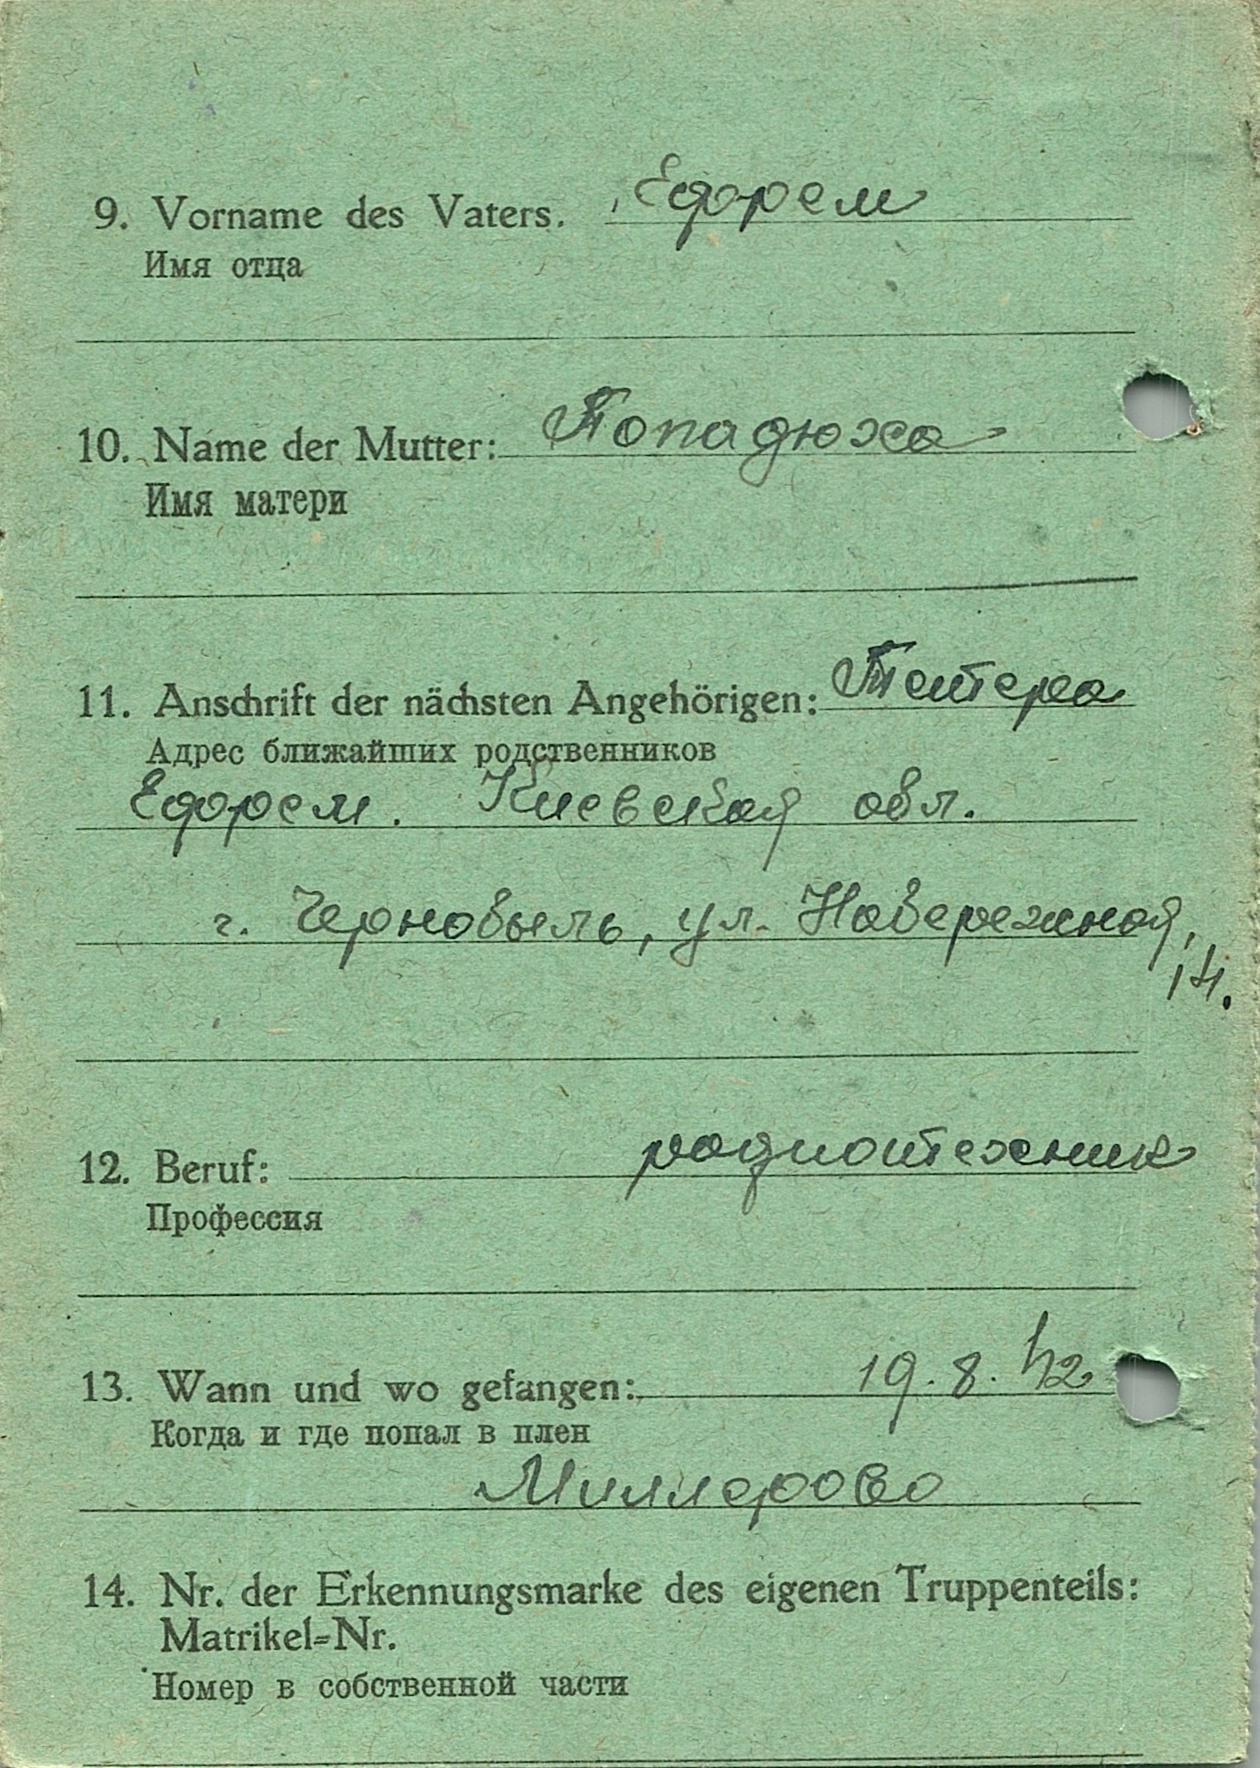 9. Vorname des Vaters. Ефрем
Имя отца
10. Name der Mutter: Попадюха
Имя матери
11. Anschrift der nächsten Angehörigen: Тетера
Адрес ближайших родственников
Ефрем. Киевская обл.
г. Чернобыль, ул. Набережная,
14.
12. Beruf: радиотехник
Профессия
13. Wann und wo gefangen: 19.8.42
Когда и где попал в плен
Миллерово
14. Nr. der Erkennungsmarke des eigenen Truppenteils:
Matrikel=Nr.
Номер в собственной части